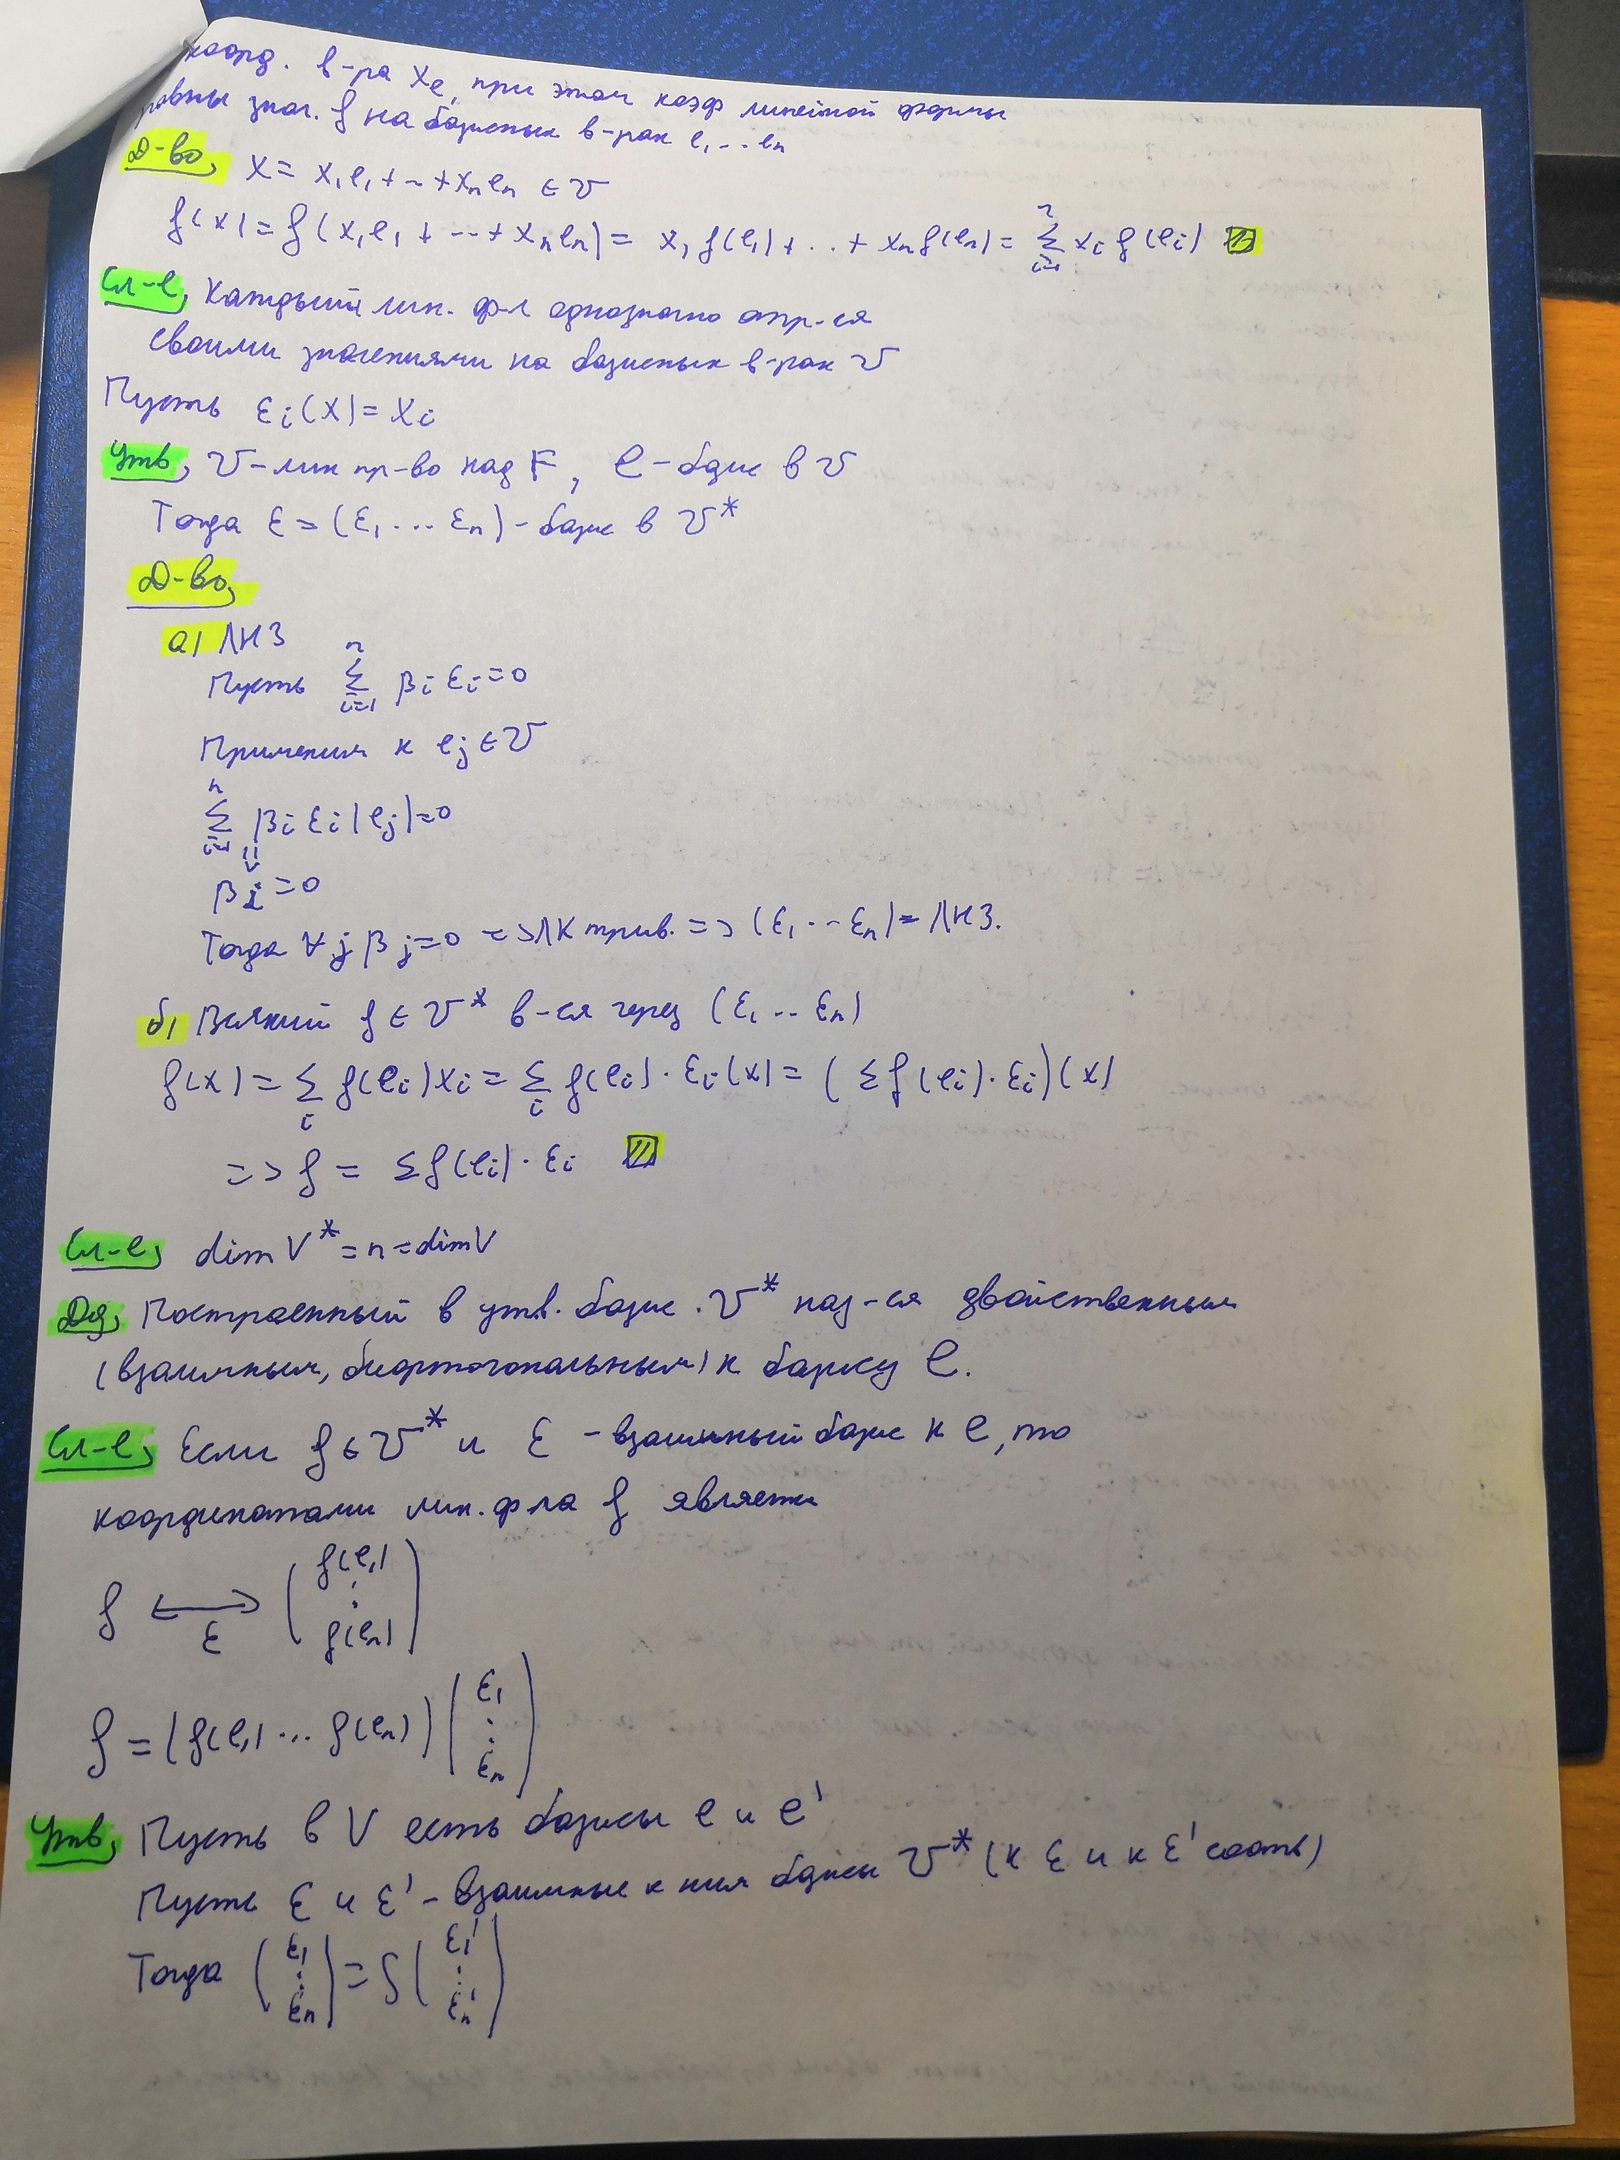 коорд. в-ра Xe, при этом коэф линейной формы
равны знач. f на базисных в-рах e₁...en
Д-во, X = x₁e₁+...+xnen ∈ V
f(x) = f(x₁e₁+...+xnen) = x₁f(e₁)+...+xnf(en) = ∑ᵢ₌₁ⁿ xᵢf(eᵢ)
Сл-е, Каждый лин. ф-л однозначно опр-ся
своими значениями на базисных в-рах V
Пусть εᵢ(X) = Xᵢ
Утв, V-лин пр-во над F, e-бзис в V
Тогда ε = (ε₁...εn) - базис в V*
Д-во,
а) ЛНЗ
Пусть ∑ᵢ₌₁ⁿ βᵢεᵢ=0
Применим к eⱼ ∈ V
∑ᵢ₌₁ⁿ βᵢεᵢ(eⱼ)=0
⇓
βi=0
Тогда ∀j βⱼ=0 => ЛК трив. => (ε₁...εn) = ЛНЗ.
б) Всякий f ∈ V* в-ся через (ε₁...εn)
f(x) = ∑ᵢ f(eᵢ)xᵢ = ∑ᵢ f(eᵢ)·εᵢ(x) = (∑f(eᵢ)·εᵢ)(x)
=> f = ∑f(eᵢ)·εᵢ
Сл-е, dim V* = n = dim V
Опр, Построенный в утв. базис V* наз-ся двойственным
(взаимным, биортогональным) к базису e.
Сл-е, Если f ∈ V* и ε - взаимный базис к e, то
координатами лин. ф-ла f является
f ⟷ε (f(e₁) ⋮ f(en))
f = (f(e₁)...f(en)) (ε₁ ⋮ εn)
Утв, Пусть в V есть базисы e и e'
Пусть ε и ε' - взаимные к ним бзисы V* (к ε и к ε' соотв)
Тогда (ε₁ ⋮ εn) = S (ε₁' ⋮ εn')